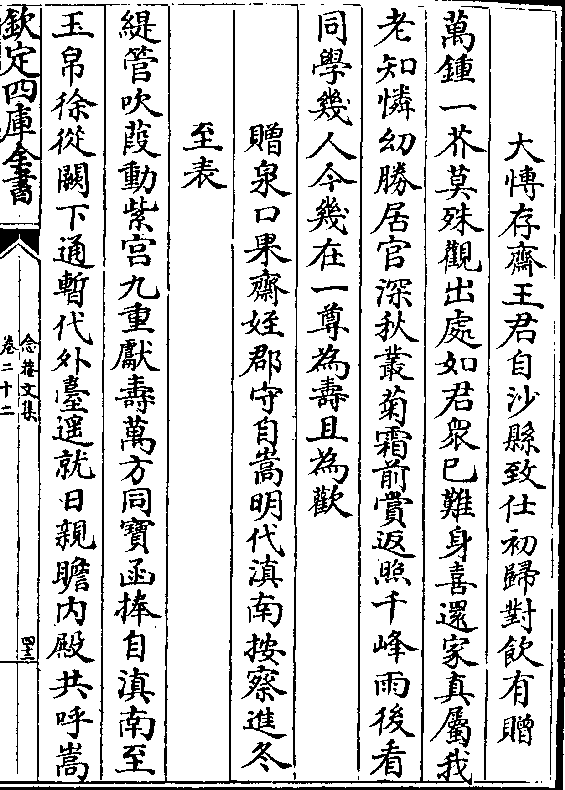 大博存齋王君自沙縣致仕初歸對飲有贈
萬鍾一芥莫殊觀出處如君衆已難身喜還家真屬我
老知憐幼勝居官深秋叢菊霜前賞返照千峰雨後看
同學幾人今幾在一尊為壽且為歡
贈泉口果齋姪郡守自嵩明代滇南按察進冬
至表
緹管吹葭動紫宫九重獻壽萬方同寶函捧自滇南至
玉帛徐從闕下通暫代外臺遥就日親瞻内殿共呼嵩
欽定四庫全書
念菴文集
卷二十二